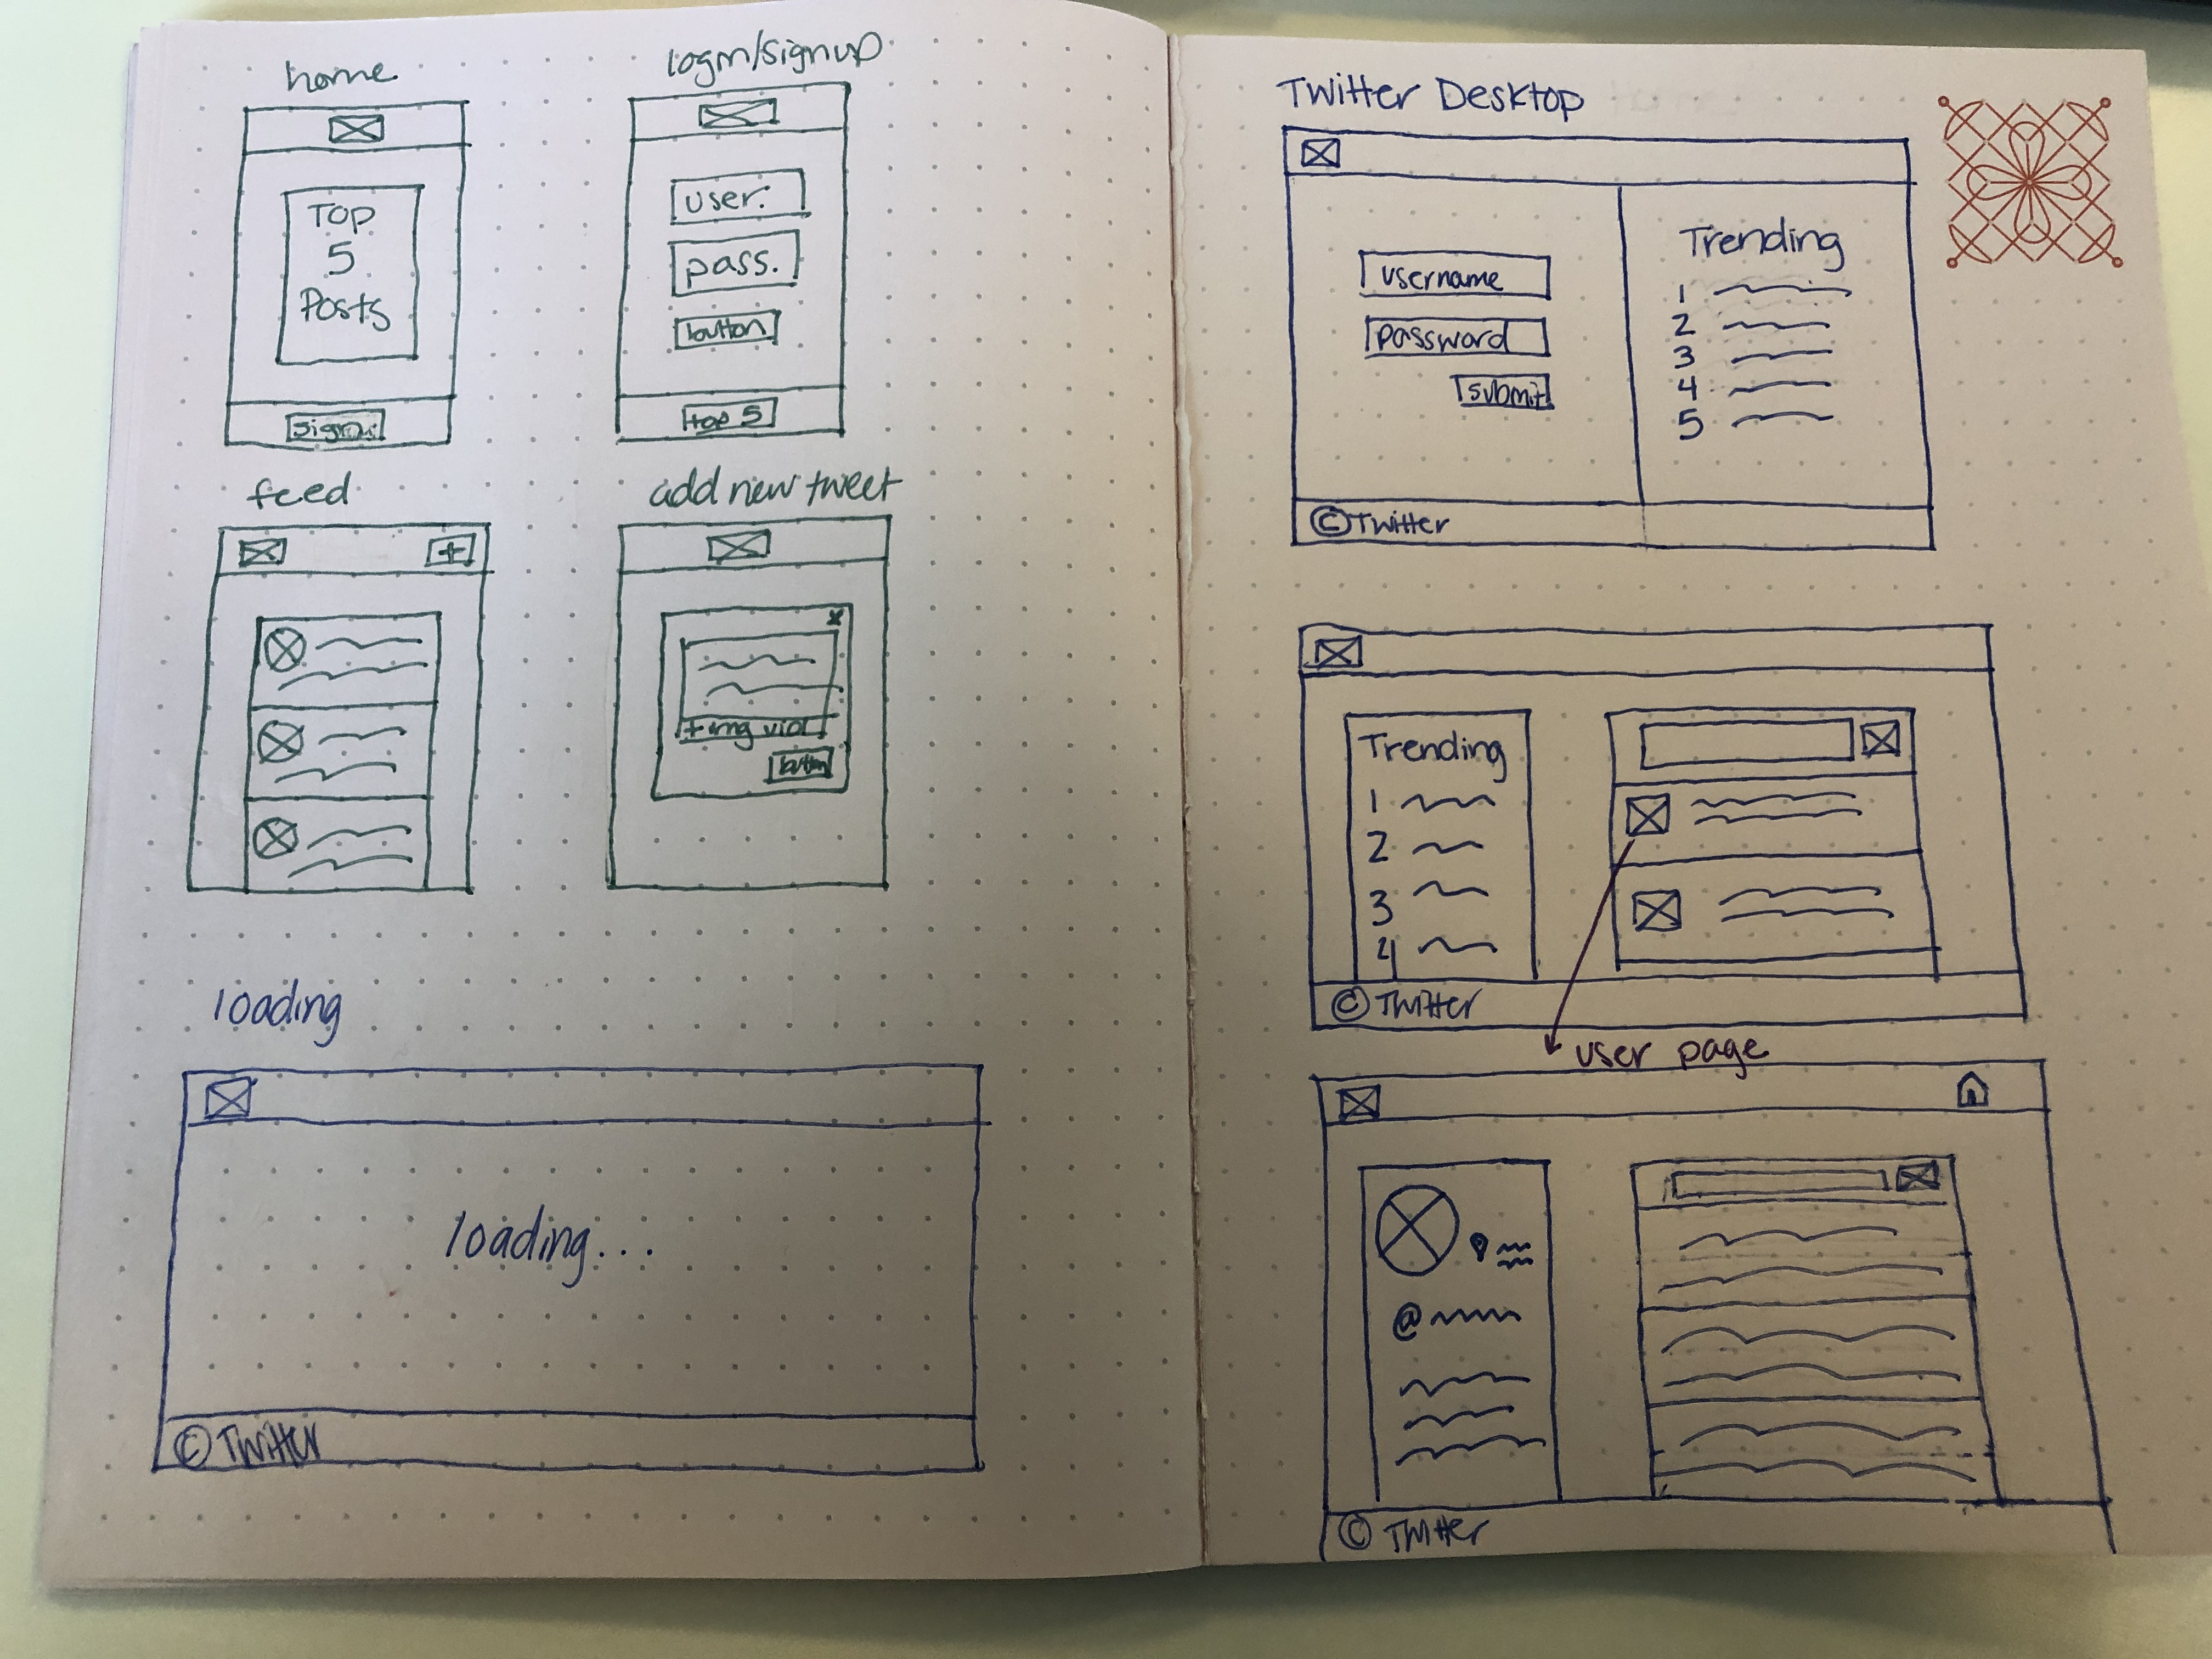 home
TOP
5
Posts
Sign
login/signup
User:
pass:
button
top 5
feed
+
add new tweet
x
+ img vid
button
loading
loading....
© Twitter
Twitter Desktop
username
password
submit
Trending
1
2
3
4
5
© Twitter
Trending
1
2
3
4
© Twitter
user page
@
© Twitter